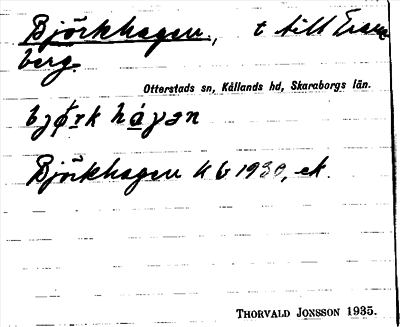 Björkhagen., t till Ekeberg.
Otterstads sn, Kållands hd, Skaraborgs län.
bjǿrk hàgən
Björkhagen Kb 1930, ek.
THORVALD JONSSON 1935.